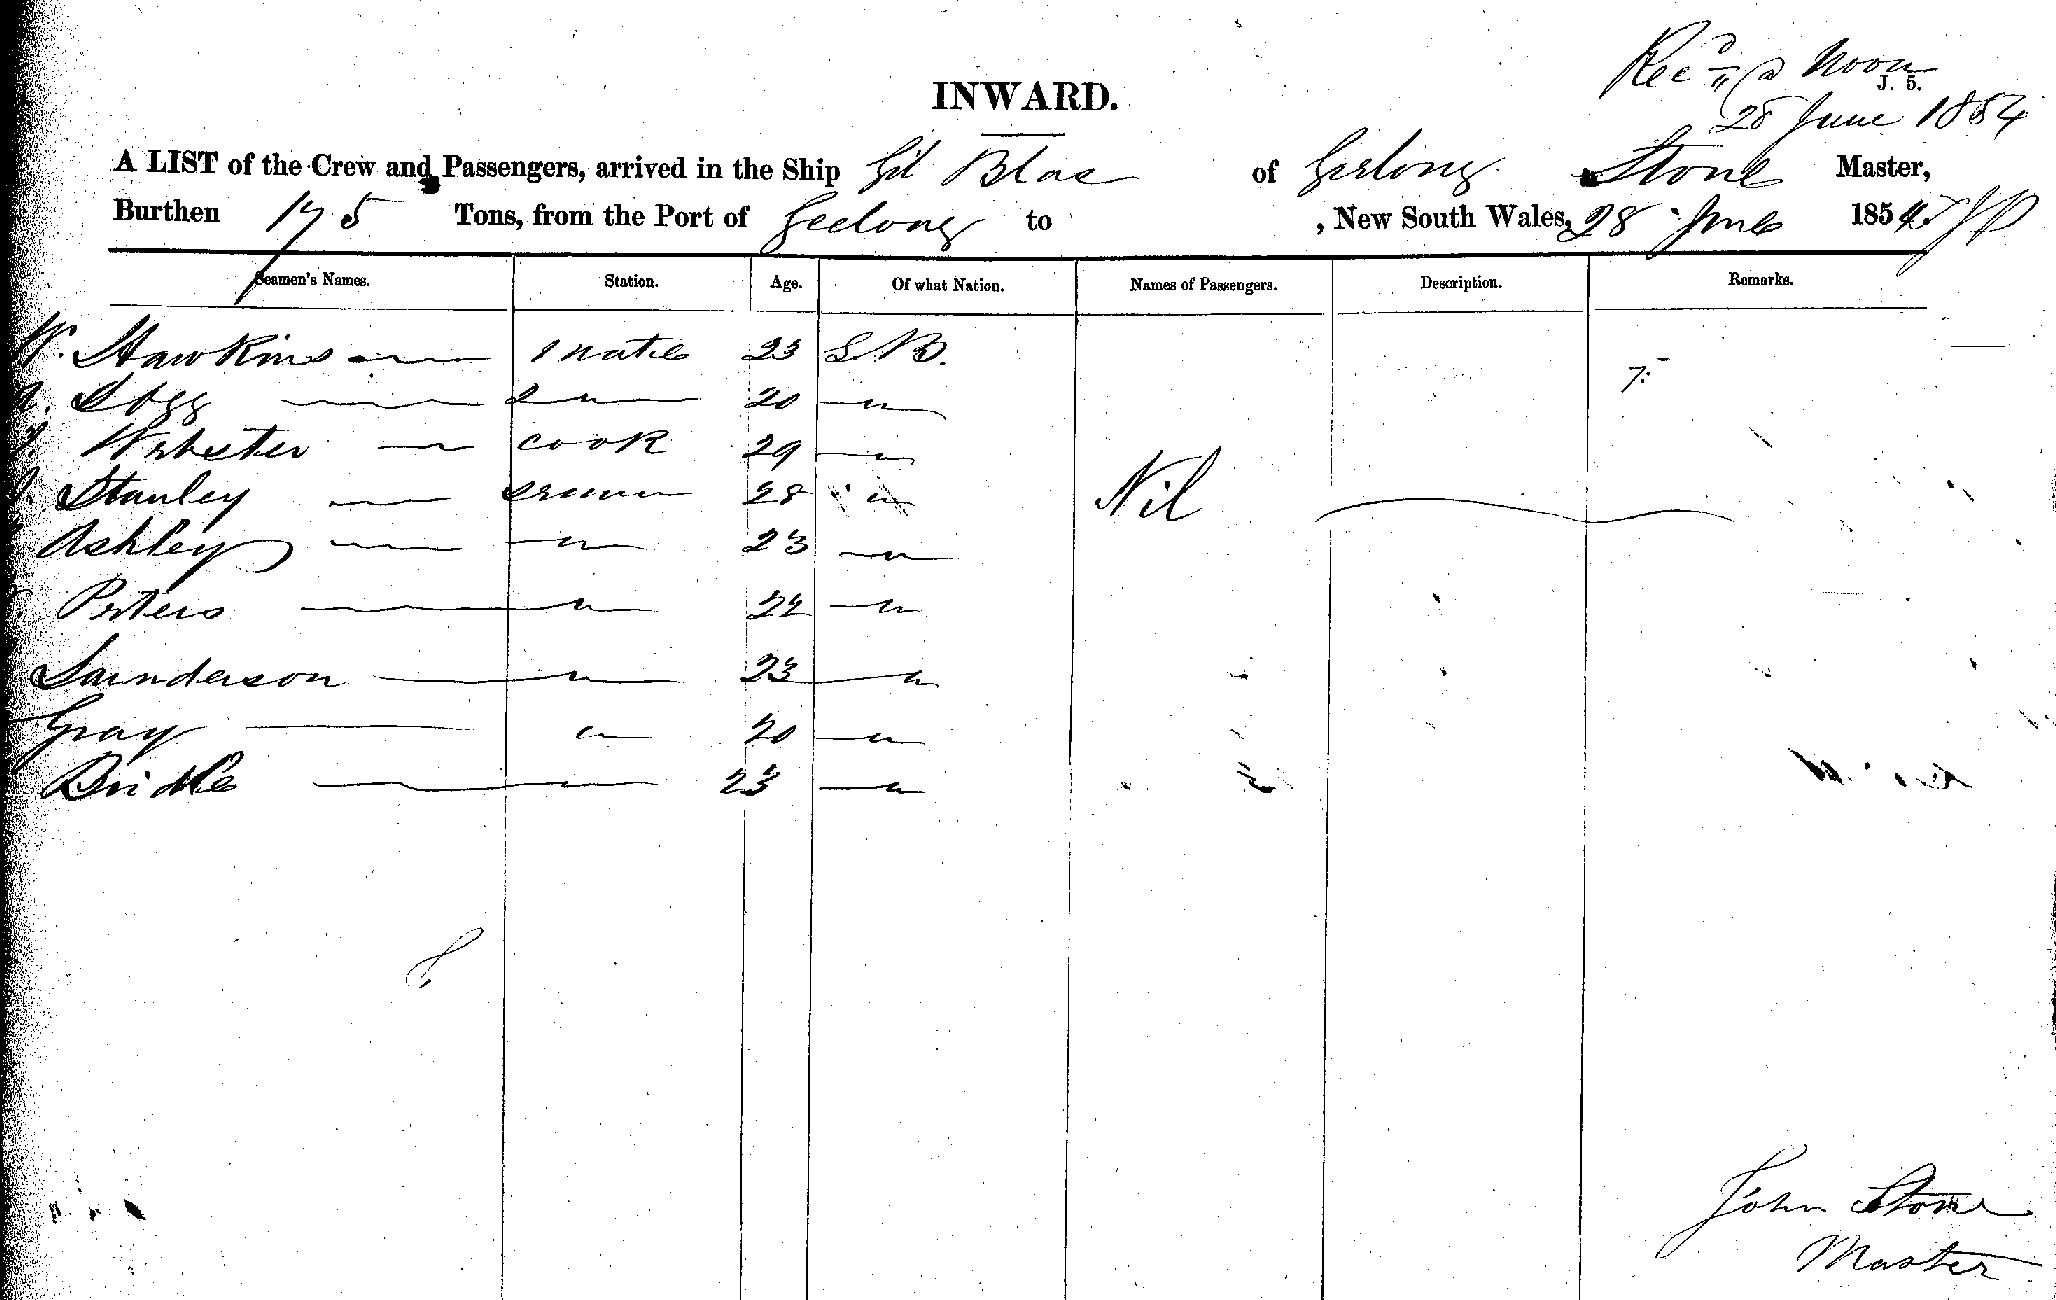 Rec'd @ Noon
J. 5.
28 June 1854
INWARD.
A LIST of the Crew and Passengers, arrived in the Ship Gil Blas of Geelong Stone Master,
Burthen 175 Tons, from the Port of Geelong to , New South Wales, 28 June 1854
Seamen's Names. Station. Age. Of what Nation. Names of Passengers. Description. Remarks.
W. Hawkins 1 mate 23 G B.
20 "
Webster cook 29 "
Stanley seaman 28 "
Nil
Ashley " 23 "
Peters " 22 "
Saunderson " 23 "
Gray " 20 "
Bridle " 23 "
John Stone
Master